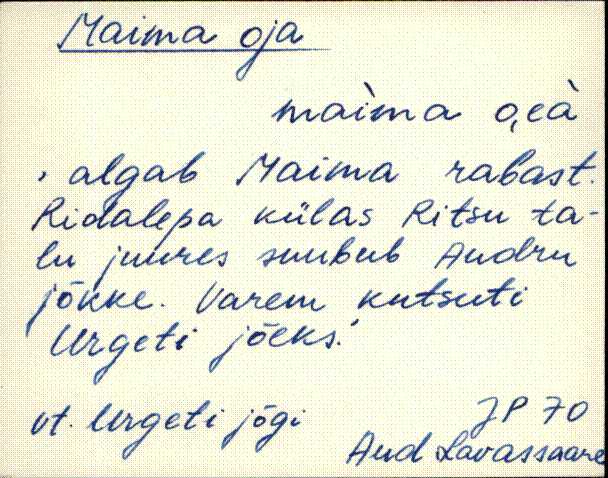 Maima oja
maìma o̭eà
‚ algab Maima rabast.
Ridalepa külas Ritsu ta-
lu juures suubub Audru
jõkke. Varem kutsuti
Urgeti jõeks.'
vt. Urgeti jõgi
JP 70
Aud Lavassaare